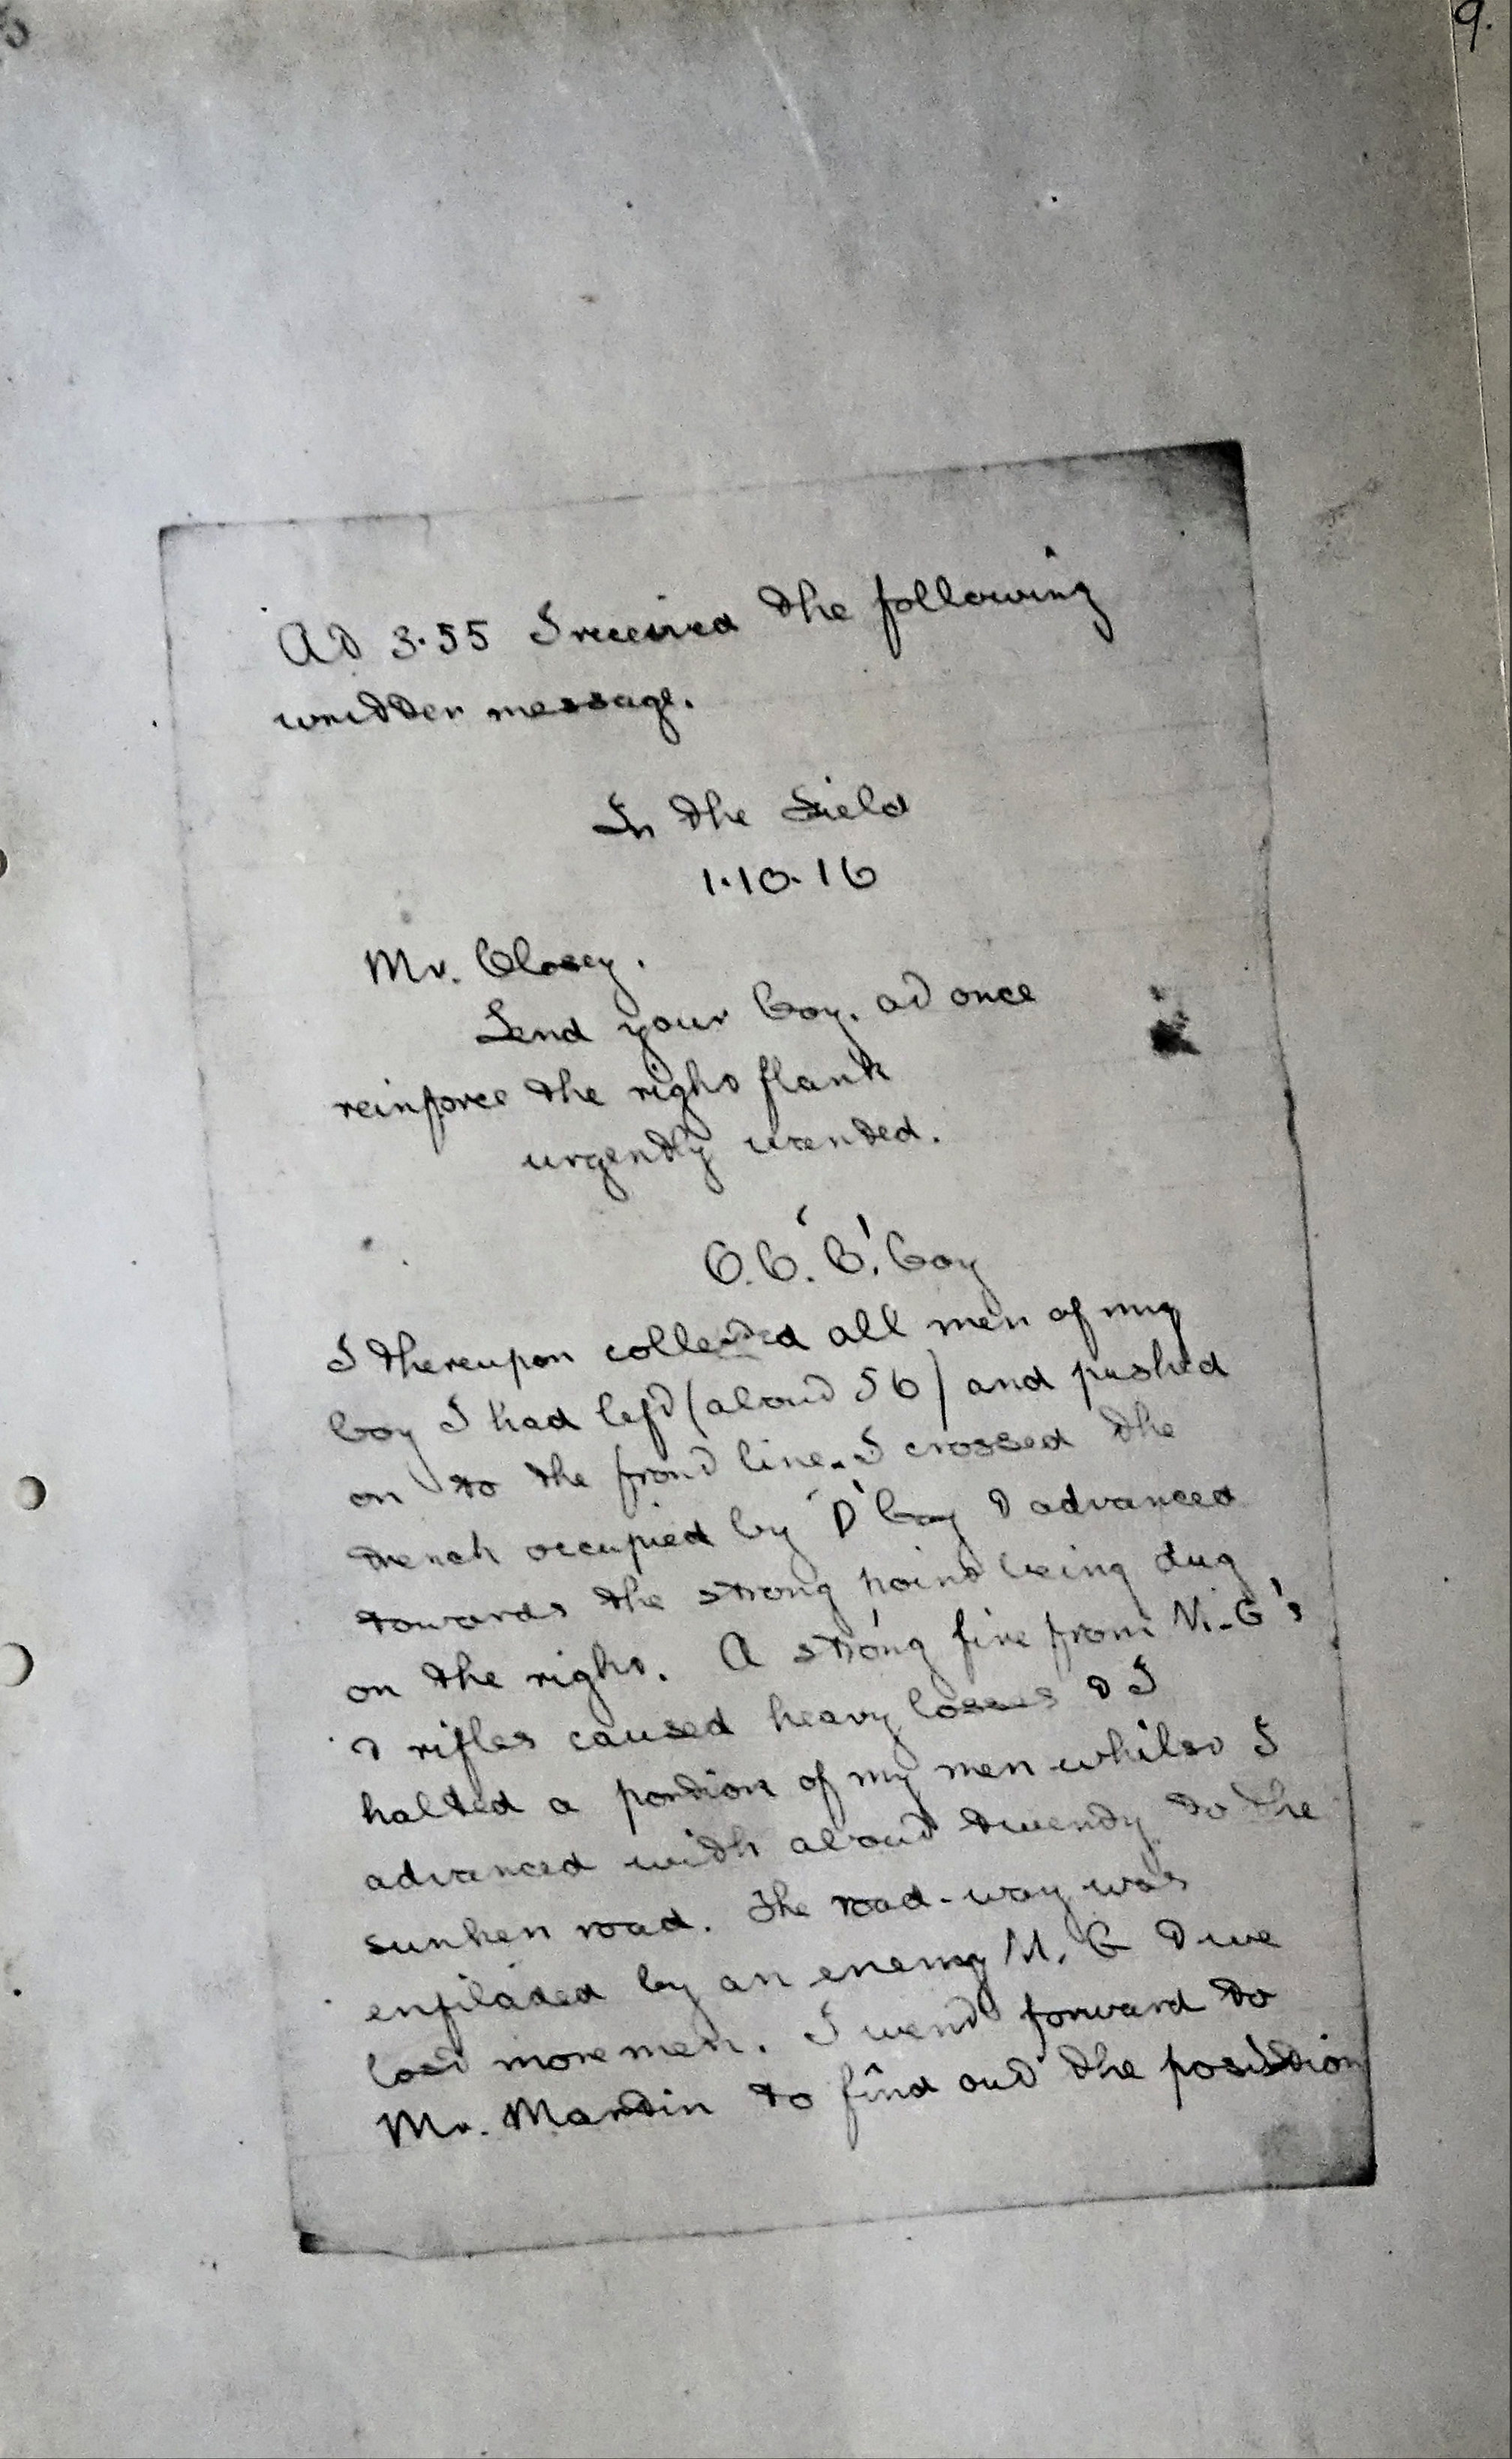 9.
At 3.55 I received the following
written message.
In the Field
1.10.16
Mr. Closey.
Send your Coy. at once
reinforce the right flank
urgently wanted.
O.C. 'C'. Coy
I thereupon collected all men of my
Coy I had left (about 56) and pushed
on to the front line. I crossed the
trench occupied by 'D' Coy & advanced
towards the strong point being dug
on the right. A strong fire from M.G's
& rifles caused heavy losses & I
halted a portion of my men whilst I
advanced with about twenty to the
sunken road. The road-way was
enfiladed by an enemy M.G & we
lost more men. I went forward to
Mr. Martin to find out the position